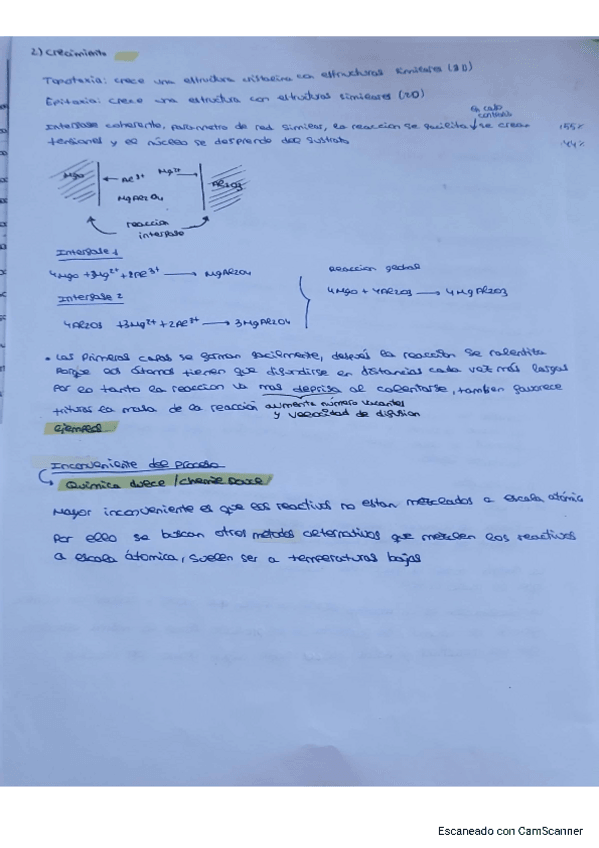 2) Crecimiento
Topotaxia: crece una estructura cristalina con estructuras similares (3D)
Epitaxia: crece una estructura con estructuras similares (2D)
Interfase coherente, parámetro de red similar, la reacción se facilita ↓ se crean
en caso contrario
tensiones y el núcleo se desprende del sustrato
<15%
MgO ← Al3+ Mg2+ → Al2O3
MgAl2O4
reaccion
interfase
Interfase 1
4MgO + 3Mg2+ + 2Al3+ → MgAl2O4
Reaccion global
4MgO + 4Al2O3 → 4MgAl2O3
Interfase 2
4Al2O3 + 3Mg2+ + 2Al3+ → 3MgAl2O4
• Las primeras capas se forman facilmente, después la reacción se ralentiza
porque los átomos tienen que difundirse en distancias cada vez más largas
Por lo tanto la reaccion va mas deprisa al calentarse, tambien favorece
triturar la mezcla de la reacción aumenta número vacantes
y velocidad de difusion
ejemplo
Inconveniente del proceso
Química dulce / chemie douce
Mayor inconveniente es que los reactivos no estan mezclados a escala atómica
Por ello se buscan otros métodos alternativos que mezclen los reactivos
a escala átomica, suelen ser a temperaturas bajas
Escaneado con CamScanner